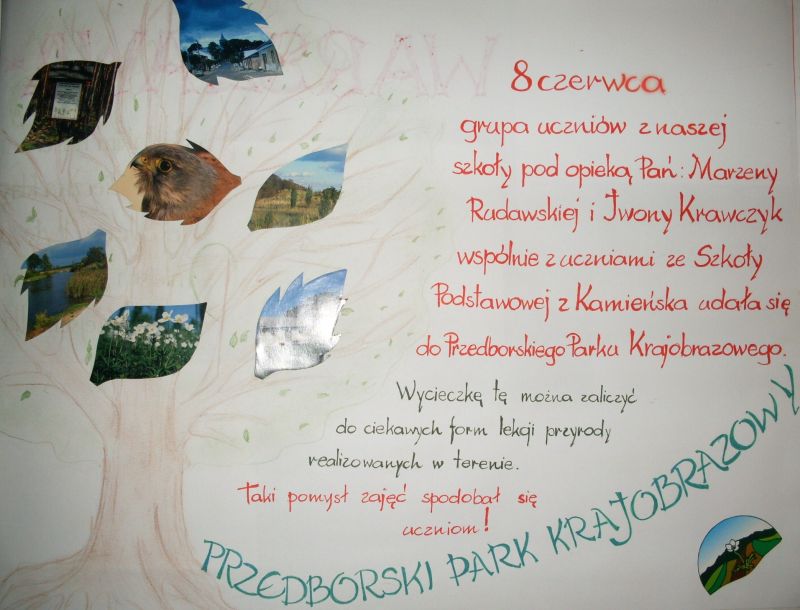 8 czerwca
grupa uczniów z naszej
szkoły pod opieką Pań: Marzeny
Rudawskiej i Iwony Krawczyk
wspólnie z uczniami ze Szkoły
Podstawowej z Kamieńska udała się
do Przedborskiego Parku Krajobrazowego.
Wycieczkę tę można zaliczyć
do ciekawych form lekcji przyrody
realizowanych w terenie.
Taki pomysł zajęć spodobał się
uczniom!
PRZEDBORSKI PARK KRAJOBRAZOWY